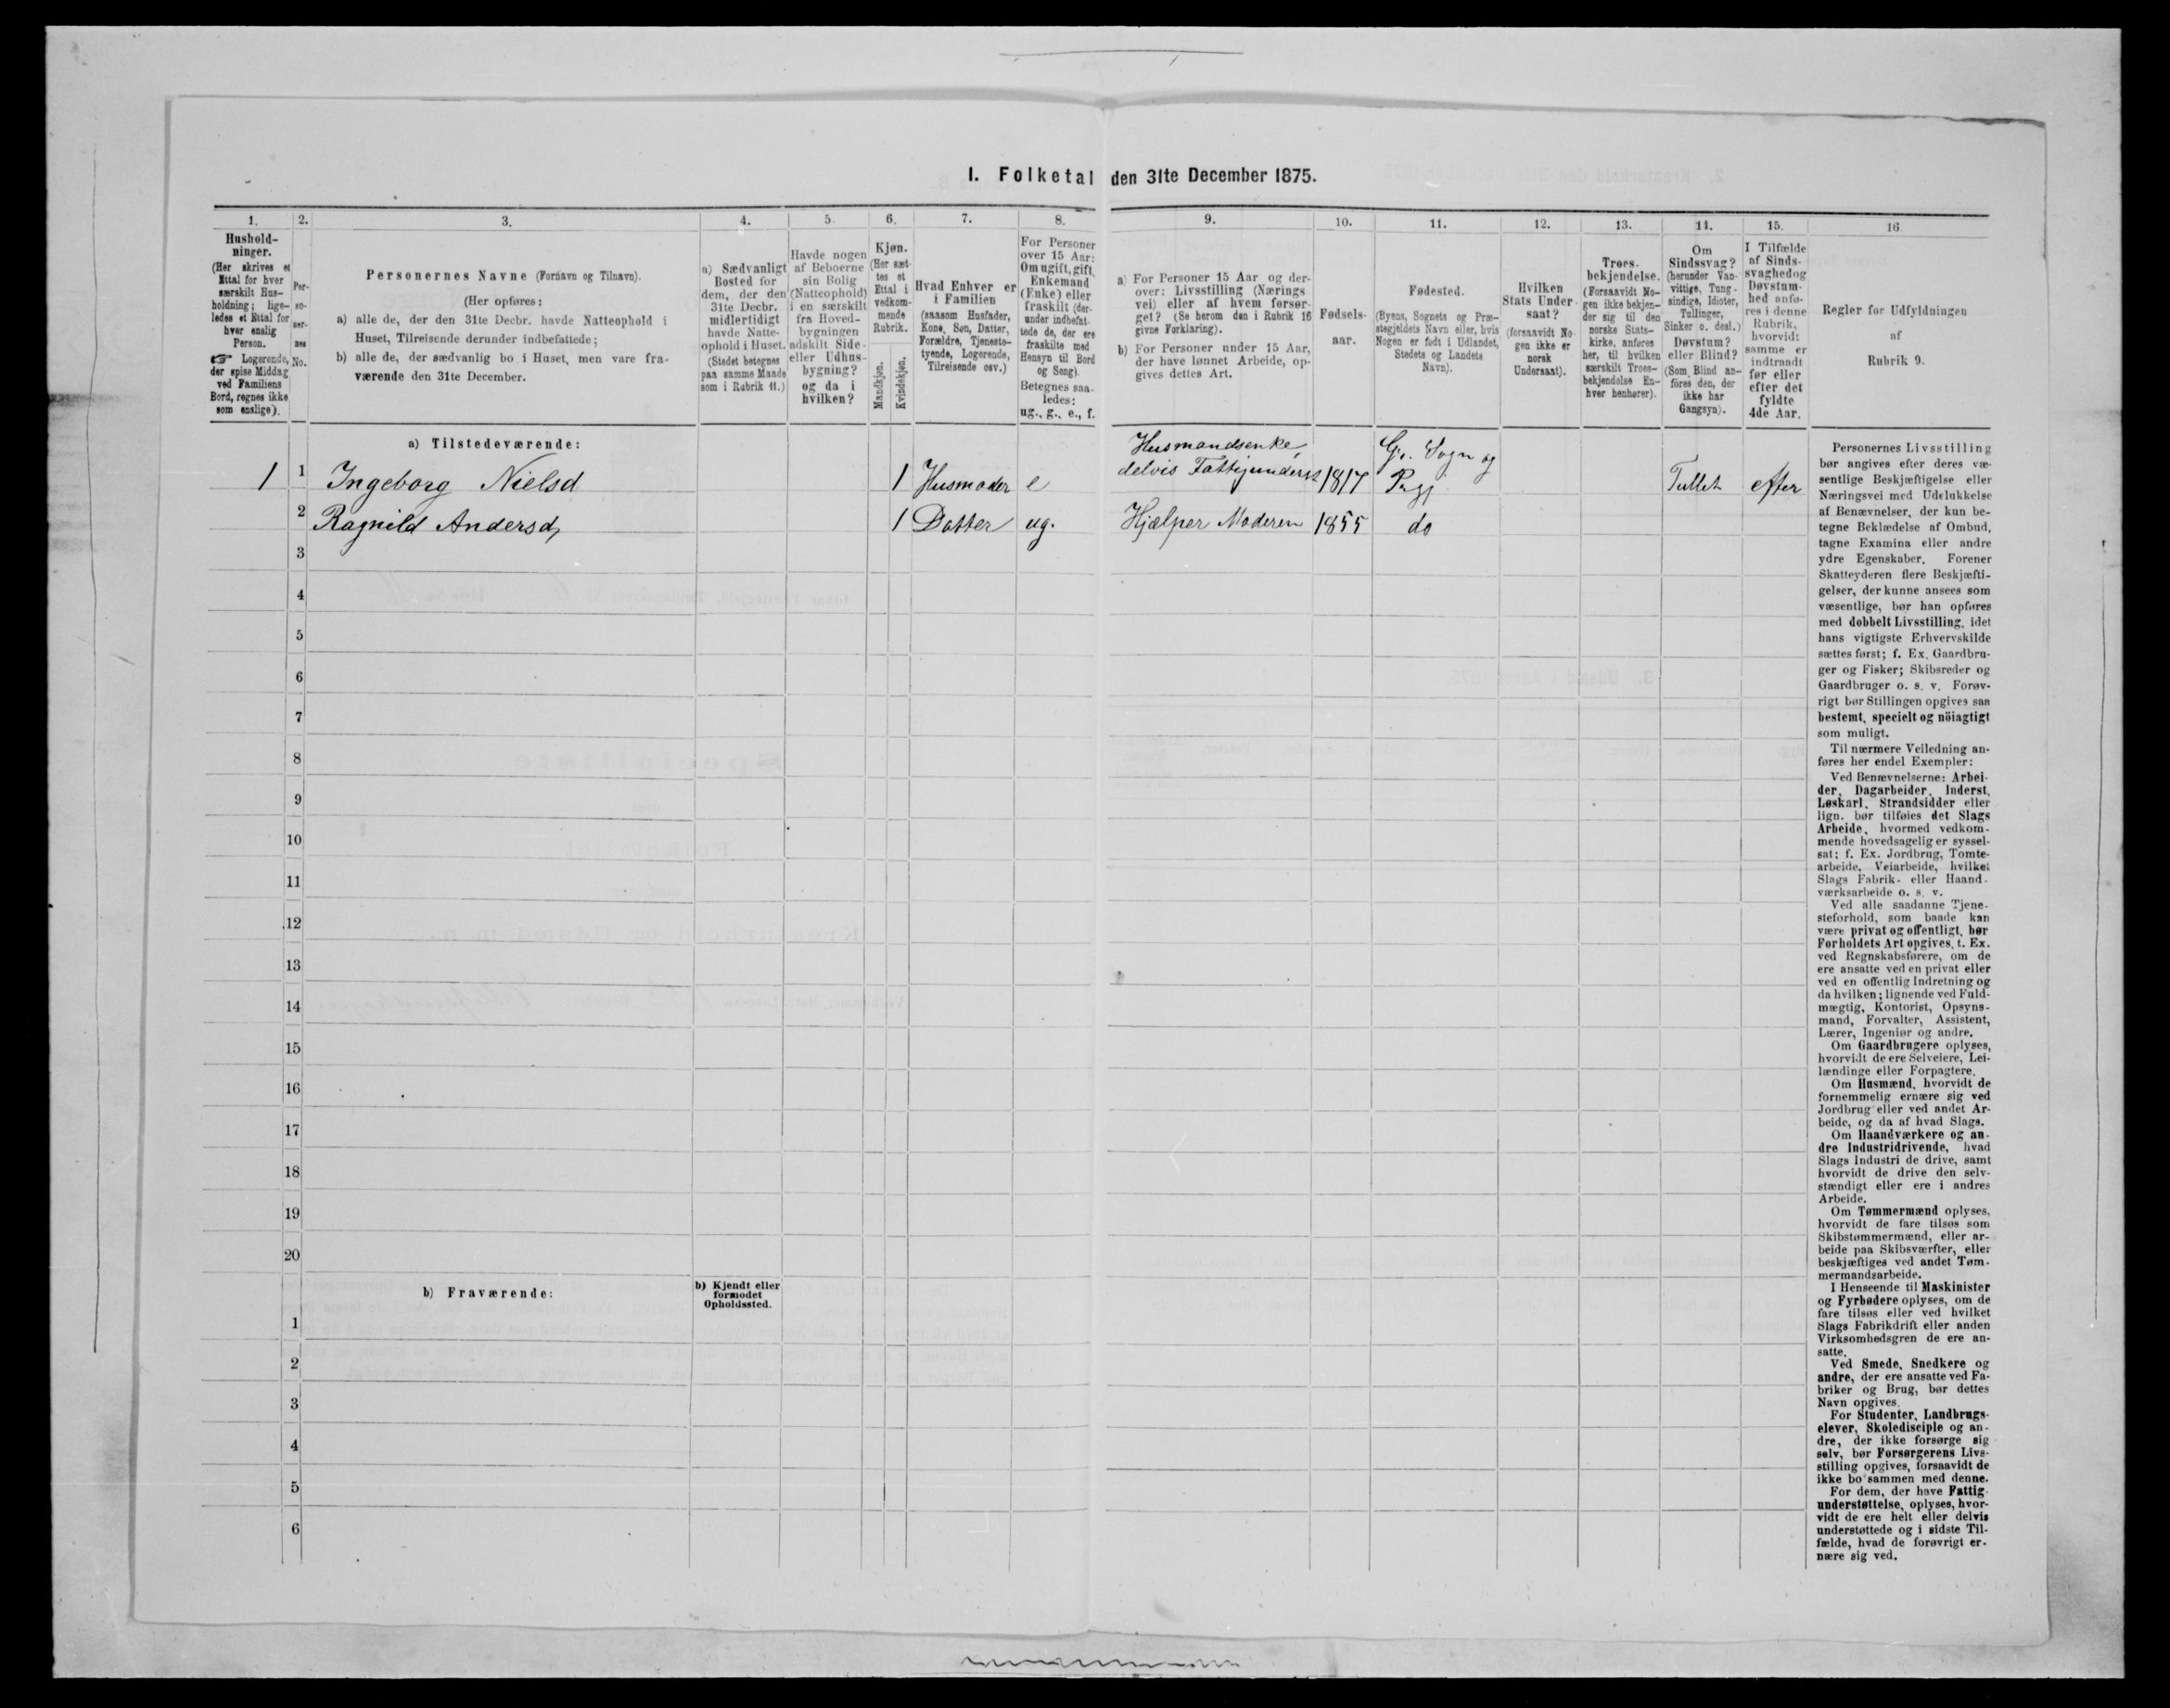 I. Folketal den 31te December 1875.
1. 2. 3. 4. 5. 6. 7. 8. 9. 10. 11. 12. 13. 14. 15. 16.
Hushold-
ninger.
(Her skrives et
Ettal for hver
særskilt Hus-
holdning; lige-
ledes et Ettal for
hver enslig
Person.
☞ Logerende,
der spise Middag
ved Familiens
Bord, regnes ikke
som enslige).
Per-
so-
ner-
nes
No.
Personernes Navne (Fornavn og Tilnavn).
(Her opføres:
a) alle de, der den 31te Decbr. havde Natteophold i
Huset, Tilreisende derunder indbefattede;
b) alle de, der sædvanlig bo i Huset, men vare fra-
værende den 31te December.
a) Sædvanligt
Bosted for
dem, der den
31te Decbr.
midlertidigt
havde Natte-
ophold i Huset.
(Stedet betegnes
paa samme Maade
som i Rubrik 11.)
Havde nogen
af Beboerne
sin Bolig
(Natteophold)
i en særskilt
fra Hoved-
bygningen
adskilt Side-
eller Udhus-
bygning?
og da i
hvilken?
Kjøn.
(Her sæt-
tes et
Ettal i
vedkom-
mende
Rubrik.
Mandkjøn.
Kvindekjøn.
Hvad Enhver er
i Familien
(saasom Husfader,
Kone, Søn, Datter,
Forældre, Tjenesto-
tyende, Logerende,
Tilreisende osv.)
For Personer
over 15 Aar:
Om ugift, gift,
Enkemand
(Enke) eller
fraskilt (der-
under indbefat-
tede de, der ere
fraskilte med
Hensyn til Bord
og Seng).
Betegnes saa-
ledes:
ug., g., e., f.
a) For Personer 15 Aar og der-
over: Livsstilling (Nærings-
vei) eller af hvem forsør-
get? (Se herom den i Rubrik 16
givne Forklaring).
b) For Personer under 15 Aar,
der have lønnet Arbeide, op-
gives dettes Art.
Fødsels-
aar.
Fødested.
(Byens, Sognets og Præ-
stegjeldets Navn eller, hvis
Nogen er født i Udlandet,
Stedets og Landets
Navn).
Hvilken
Stats Under-
saat?
(forsaavidt No-
gen ikke er
norsk
Undersaat).
Troes-
bekjendelse.
(Forsaavidt No-
gen ikke bekjen-
der sig til den
norske Stats-
kirke, anføres
her, til hvilken
særskilt Troes-
bekjendelse En-
hver henhører).
Om
Sindssvag?
(herunder Van-
vittige, Tung-
sindige, Idioter,
Tullinger,
Sinker o. desl.)
Døvstum?
eller Blind?
(Som Blind an-
føres den, der
ikke har
Gangsyn).
I Tilfælde
af Sinds-
svaghed og
Døvstum-
hed anfø-
res i denne
Rubrik,
hvorvidt
samme er
indtraadt
før eller
efter det
fyldte
4de Aar.
Regler for Udfyldningen
af
Rubrik 9.
a) Tilstedeværende:
Husmandsenke, Gr. Sogn og
1 1 Ingeborg Nielsd 1 Husmoder e delvis Fattigunderst 1817 Prgj. Tullet efter
2 Ragnild Andersd, 1 Datter ug. Hjælper Moderen 1855 do
3
4
5
6
7
8
9
10
11
12
13
14
15
16
17
18
19
20
b) Fraværende:
b) Kjendt eller
formodet
Opholdssted.
1
2
3
4
5
6
Personernes Livsstilling
bør angives efter deres væ-
sentlige Beskjæftigelse eller
Næringsvei med Udelukkelse
af Benævnelser, der kun be-
tegne Beklædelse af Ombud,
tagne Examina eller andre
ydre Egenskaber. Forener
Skatteyderen flere Beskjæfti-
gelser, der kunne ansees som
væsentlige, bør han opføres
med dobbelt Livsstilling, idet
hans vigtigste Erhvervskilde
sættes først; f. Ex. Gaardbru-
ger og Fisker; Skibsreder og
Gaardbruger o. s. v. Forøv-
rigt bør Stillingen opgives saa
bestemt, specielt og nöiagtigt
som muligt.
Til nærmere Veiledning an-
føres her endel Exempler:
Ved Benævnelserne: Arbei-
der, Dagarbeider, Inderst,
Løskarl, Strandsidder eller
lign. bør tilføies det Slags
Arbeide, hvormed vedkom-
mende hovedsagelig er syssel-
sat; f. Ex. Jordbrug, Tomte-
arbeide, Veiarbeide, hvilket
Slags Fabrik- eller Haand-
værksarbeide o. s. v.
Ved alle saadanne Tjene-
steforhold, som baade kan
være privat og offentligt, bør
Forholdets Art opgives, t. Ex.
ved Regnskabsførere, om de
ere ansatte ved en privat eller
ved en offentlig Indretning og
da hvilken; lignende ved Fuld-
mægtig, Kontorist, Opsyns-
mand, Forvalter, Assistent,
Lærer, Ingeniør og andre.
Om Gaardbrugere oplyses,
hvorvidt de ere Selveiere, Lei-
lændinge eller Forpagtere.
Om Husmænd, hvorvidt de
fornemmelig ernære sig ved
Jordbrug eller ved andet Ar-
beide, og da af hvad Slags.
Om Haandværkere og an-
dre Industridrivende, hvad
Slags Industri de drive, samt
hvorvidt de drive den selv-
stændigt eller ere i andres
Arbeide.
Om Tømmermænd oplyses,
hvorvidt de fare tilsøs som
Skibstømmermænd, eller ar-
beide paa Skibsværfter, eller
beskjæftiges ved andet Tøm-
mermandsarbeide.
I Henseende til Maskinister
og Fyrbødere oplyses, om de
fare tilsøs eller ved hvilket
Slags Fabrikdrift eller anden
Virksomhedsgren de ere an-
satte.
Ved Smede, Snedkere og
andre, der ere ansatte ved Fa-
briker og Brug, bør dettes
Navn opgives.
For Studenter, Landbrugs-
elever, Skoledisciple og an-
dre, der ikke forsørge sig
selv, bør Forsørgerens Livs-
stilling opgives, forsaavidt de
ikke bo sammen med denne.
For dem, der have Fattig-
understøttelse, oplyses, hvor-
vidt de ere helt eller delvis
understøttede og i sidste Til-
fælde, hvad de forøvrigt er-
nære sig ved.